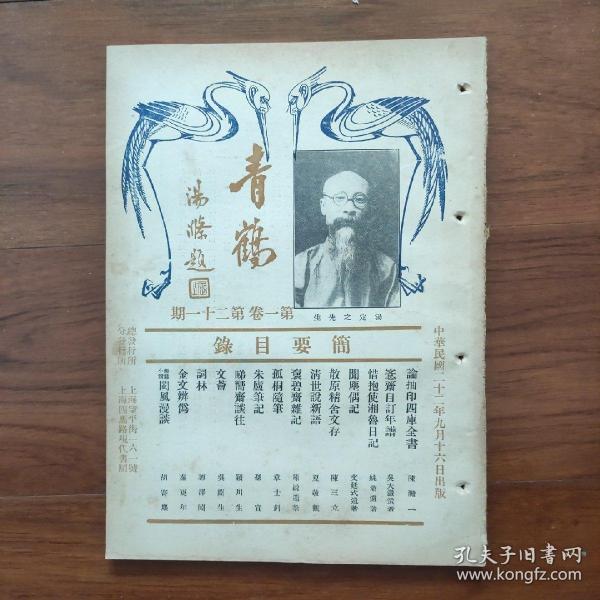 青鶴
湯滌題
湯定之先生
第一卷第二十一期
簡要目錄
中華民國二十二年九月十六日出版
論抽印四庫全書 陳瀏一
愙齋自訂年譜 吳大澂遺著
惜抱使湘魯日記 姚鼐遺著
聞塵偶記 文廷式遺著
散原精舍文存 陳三立
清世說新語 夏敬觀
裦碧齋雜記 陳銳遺著
孤桐隨筆 章士釗
朱廬筆記
睇嚮齋談往 潁川生
文薈
詞林
金文辨偽 秦更年
閩風漫談
總發行所 上海望平街一六一號
分發行所 上海四馬路現代書局
孔夫子旧书网
www.kongfz.com